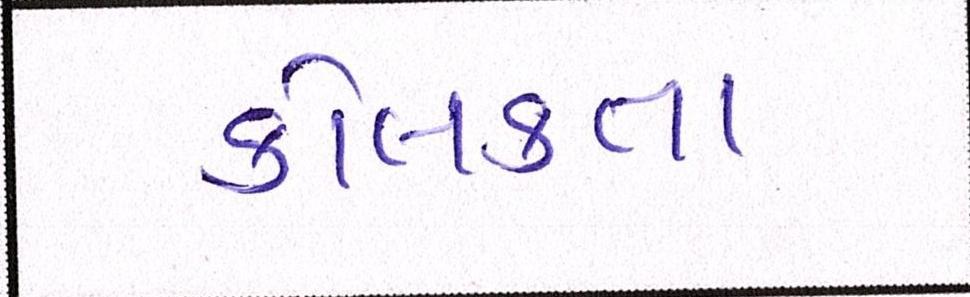 કોલકતા